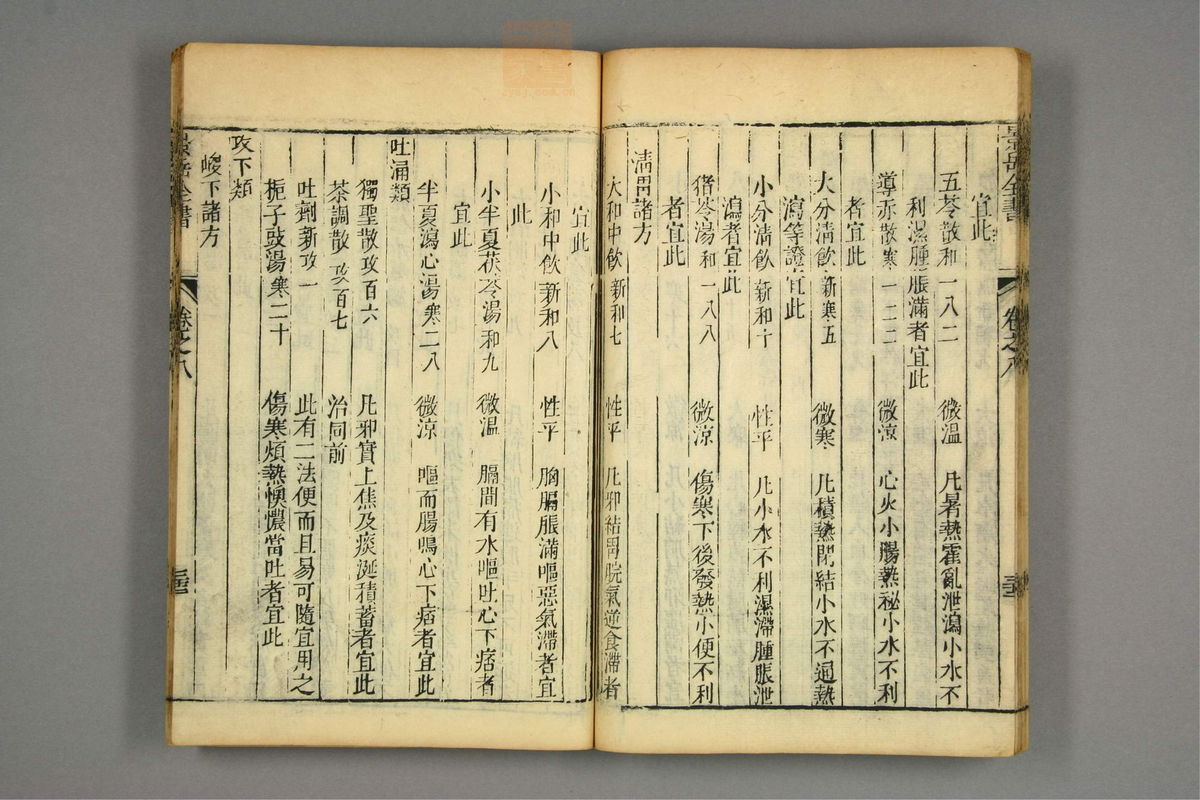 景岳全書
卷之八
宜此
五苓散和一八二 微溫 凡暑熱霍亂泄瀉小水不
利濕腫脹滿者宜此
導赤散寒一二二 微凉 心火小腸熱祕小水不利
者宜此
大分淸飲新寒五 微寒 凡積熱閉結小水不通熱
瀉等證宜此
小分淸飲新和十 性平 凡小水不利濕滯腫脹泄
瀉者宜此
猪苓湯和一八八 微凉 傷寒下後發熱小便不利
者宜此
淸胃諸方
大和中飲新和七 性平 凡邪結胃脘氣逆食滯者
宜此
小和中飲新和八 性平 胸膈脹滿嘔惡氣滯者宜
此
小半夏茯苓湯和九 微溫 膈間有水嘔吐心下痞者
宜此
半夏瀉心湯寒二八 微凉 嘔而腸鳴心下痞者宜此
吐涌類
獨聖散攻百六 凡邪實上焦及痰涎積蓄者宜此
茶調散攻百七 治同前
吐劑新攻一 此有二法便而且易可隨宜用之
梔子豉湯寒二十 傷寒煩熱懊憹當吐者宜此
攻下類
峻下諸方
景岳全書
卷之八